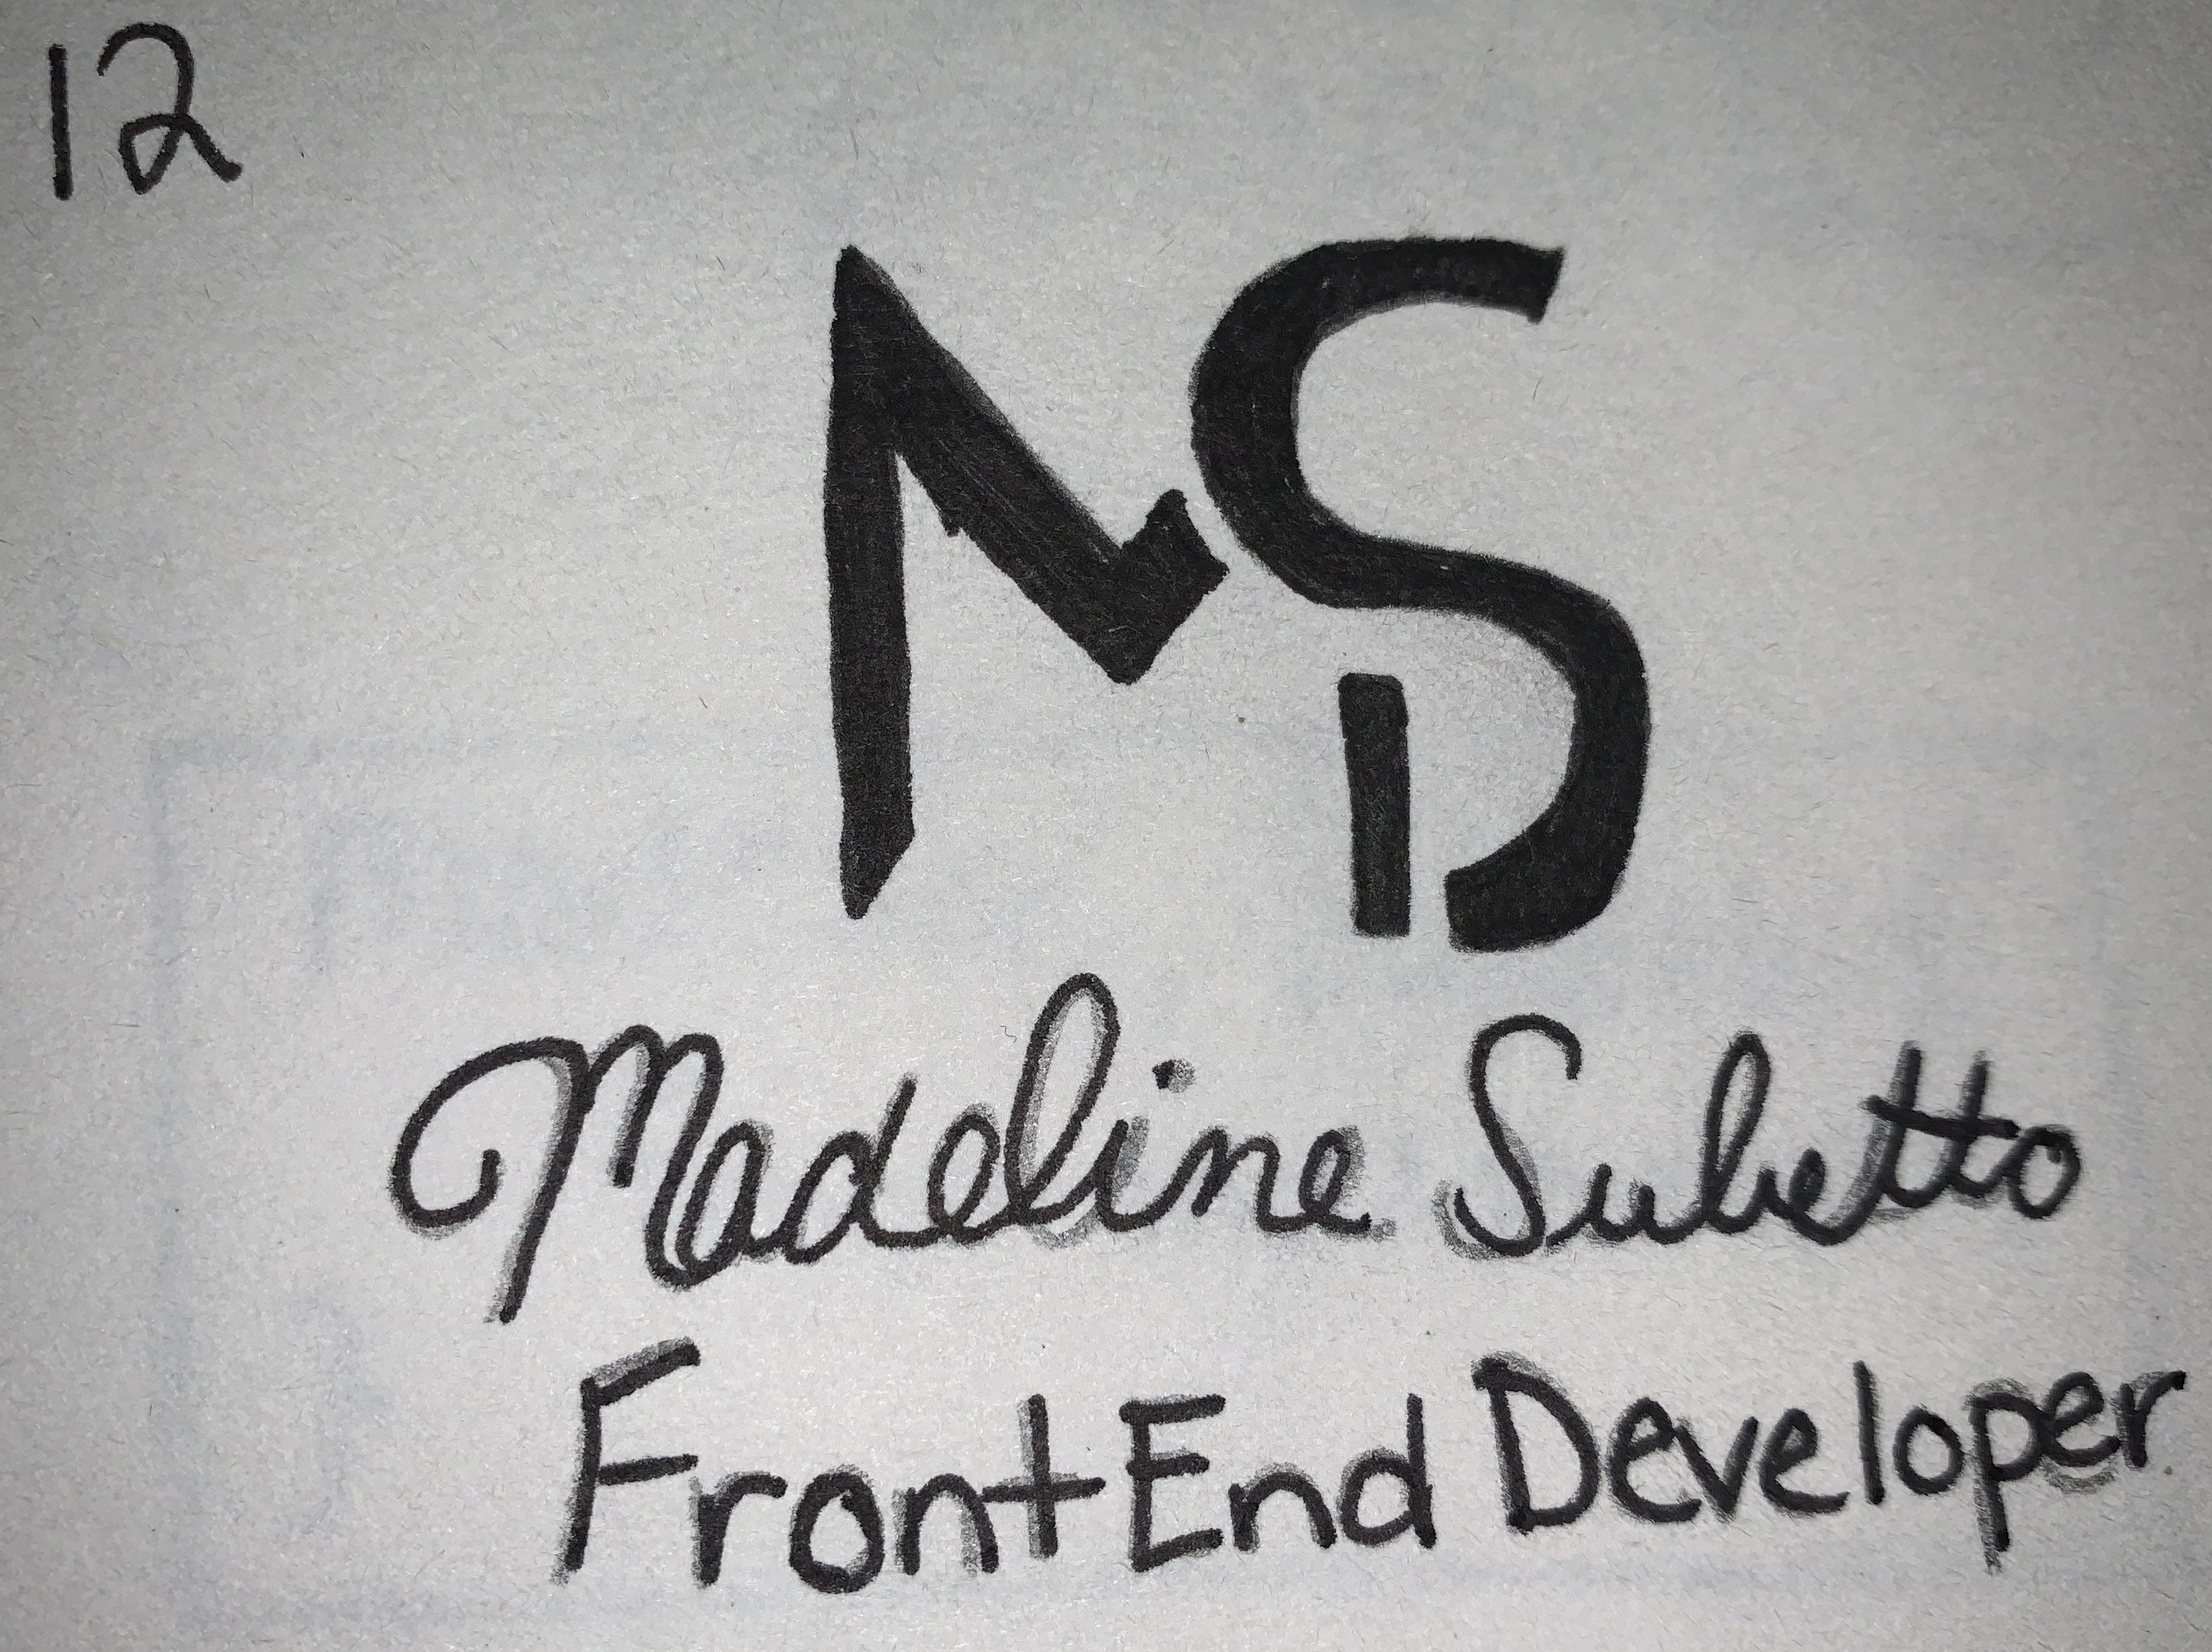 12
MS
Madeline Subetto
Front End Developer